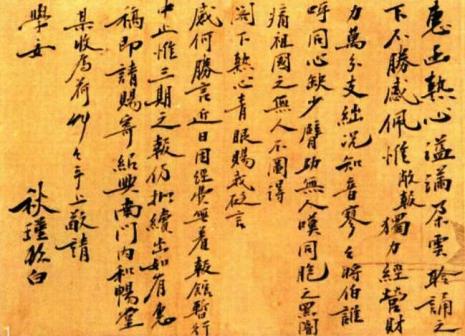 惠函熱心溢滿朵雲聆誦之
下不勝感佩惟敝報獨力經營財
力萬分支絀況知音寥々將伯誰
呼同心缺少臂助無人嘆同胞之黑闇
痛祖國之無人不圖得
閣下熱心青眼賜我砭言
感何勝言近日因經費無著報館暫行
中止惟三期之報仍擬續出如有惠
稿即請賜寄紹興南門內和暢堂
某收為荷艸々手上敬請
學安
秋瑾白
1